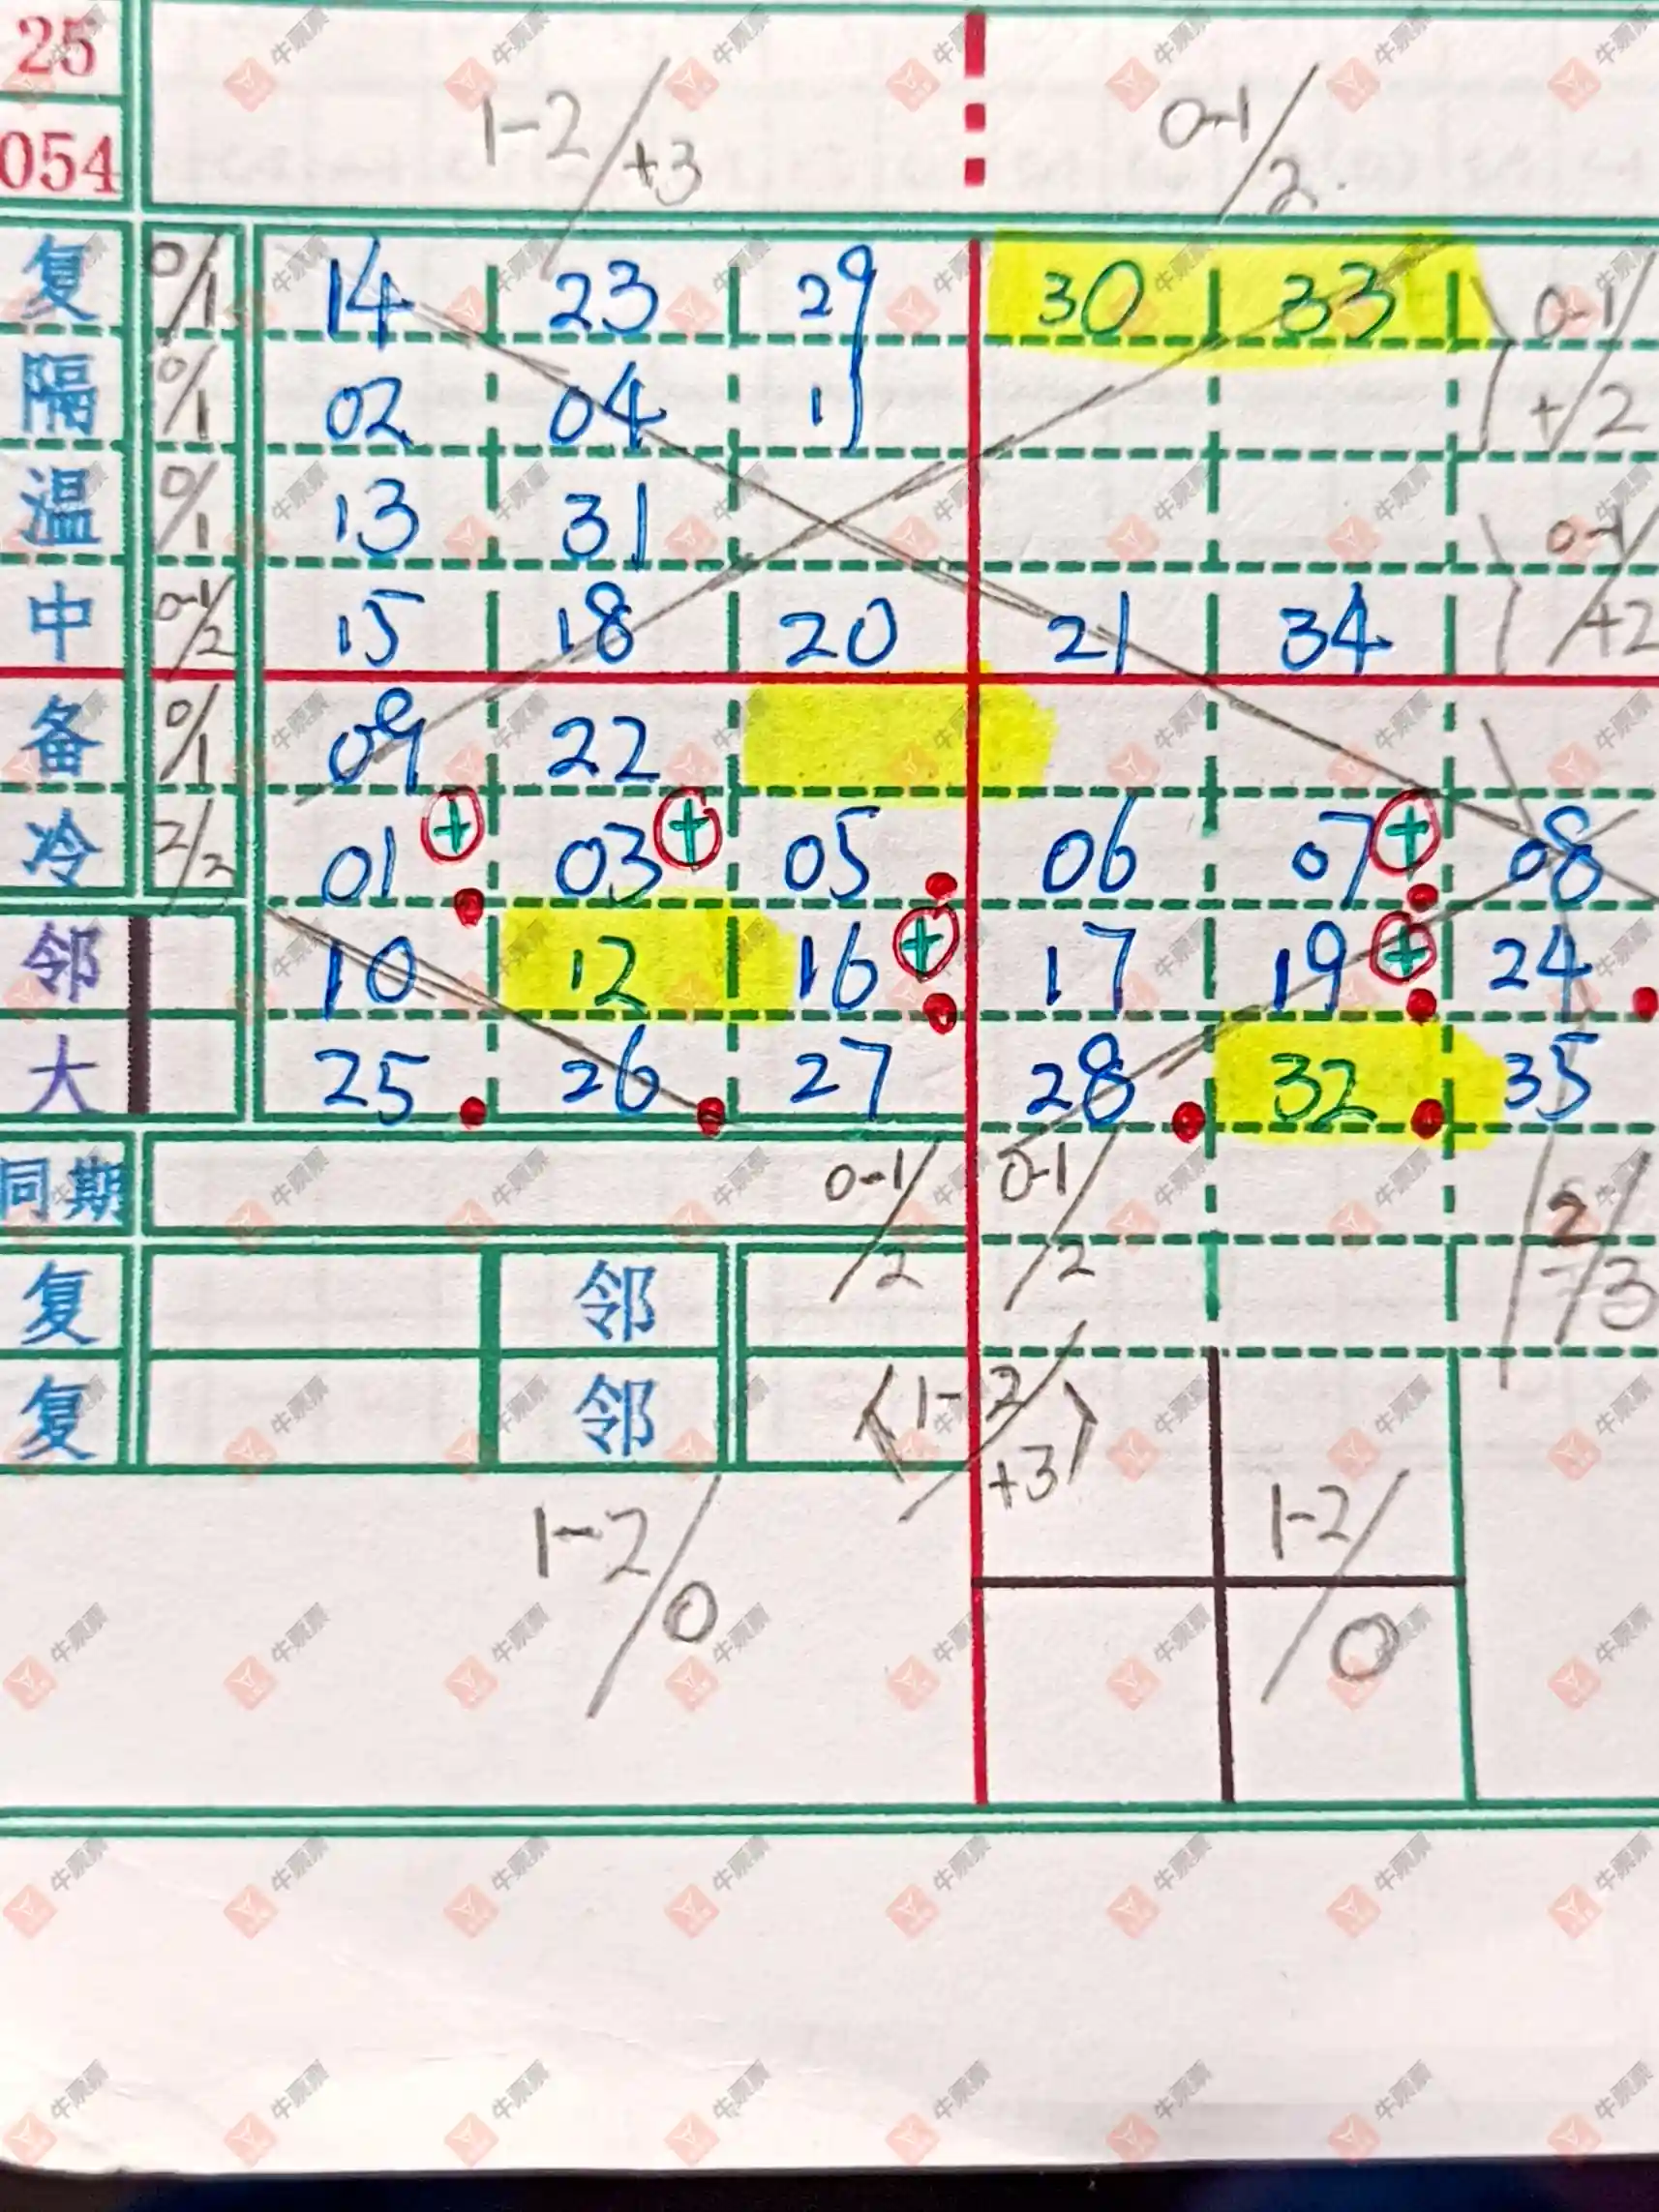 25
054
1-2/+3
0-1/2
复 0/1 14 23 29 30 33 0-1/+2
隔 0/1 02 04 11
温 0/1 13 31 0-1/+2
中 0-1/2 15 18 20 21 34
备 0/1 09 22
冷 2/2 01 + 03 + 05 06 07 + 08
邻 10 12 16 + 17 19 + 24
大 25 26 27 28 32 35
同期 0-1/2 0-1/2
复 邻
复 邻 <1-2/+3>
1-2/0 1-2/0
牛票票